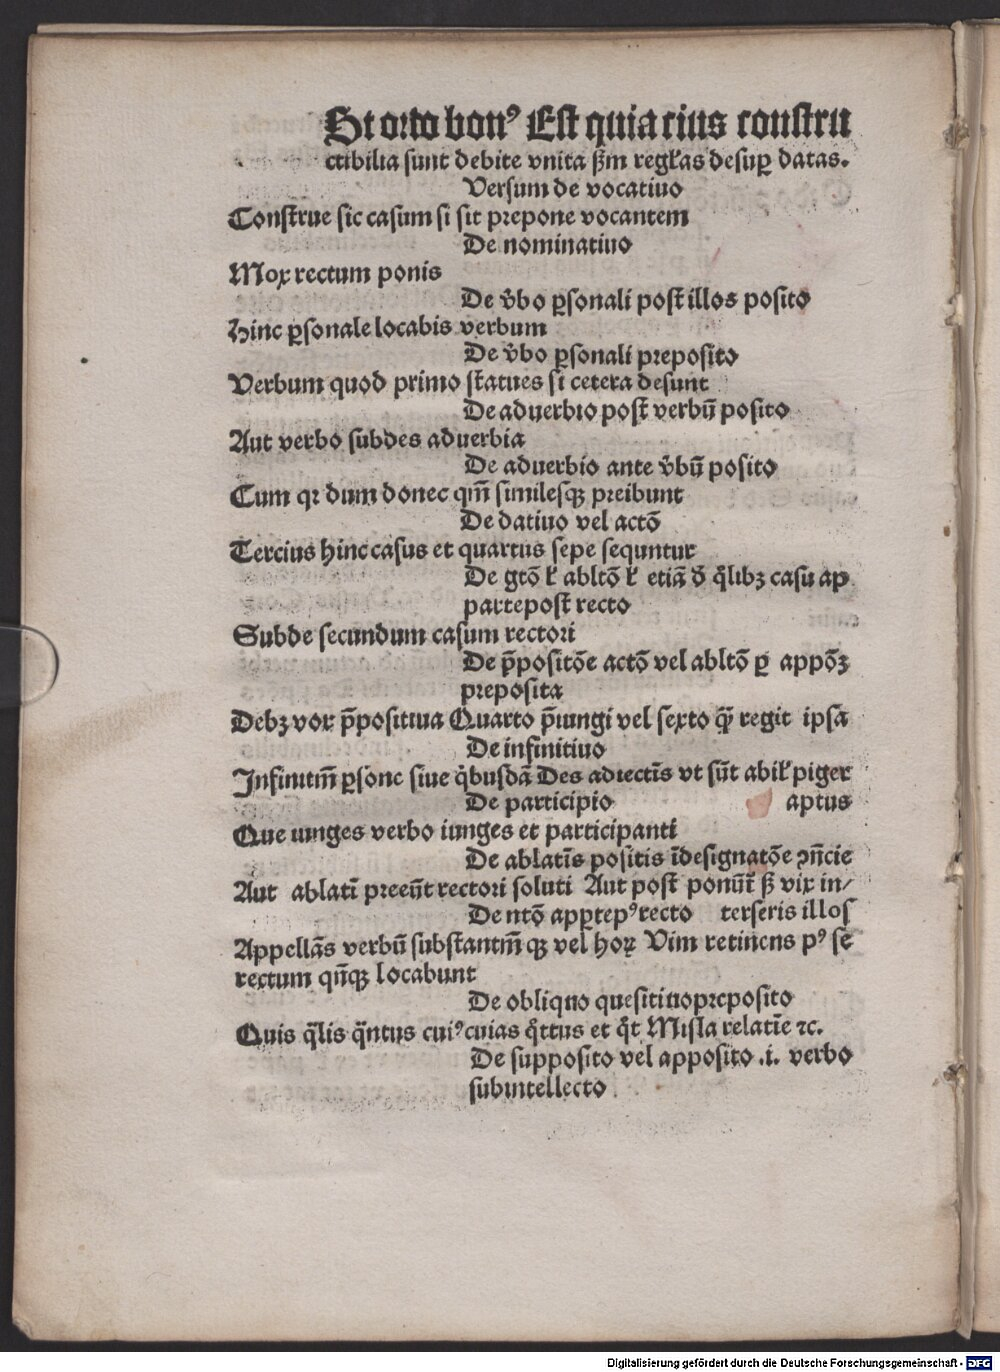 St ordo bonꝰ Est quia eius constru
ctibilia sunt debite vnita ẜm regl̓as desuꝑ datas.
Versum de vocatiuo
Construe sic casum si sit prepone vocantem
De nominatiuo
Mox rectum ponis
De v̓bo ꝑsonali post illos posito
Hinc ꝑsonale locabis verbum
De v̓bo ꝑsonali preposito
Verbum quod primo statues si cetera desunt
De aduerbio post verbū posito
Aut verbo subdes aduerbia
De aduerbio ante v̓bū posito
Cum qr dum donec qm̄ similesqꝫ preibunt
De datiuo vel actō
Tercius hinc casus et quartus sepe sequntur
De gtō l̓ abltō l̓ etiā d̓ q̓libꝫ casu ap
partepost recto
Subde secundum casum rectori
De p̄positōe actō vel abltō ꝑ appōꝫ
preposita
Debꝫ vox p̄positiua Quarto p̄iungi vel sexto q̄ regit ipsa
De infinitiuo
Infinitm̄ ꝑsone siue q̓busdā Des adiectīs vt sūt abil̓ piger
De participio aptus
Que iunges verbo iunges et participanti
De ablatīs positis īdesignatōe ꝯn̄cie
Aut ablatī preeūt rectori soluti Aut post ponūt̓ ẜ vix in/
De ntō apꝑtepꝰ recto terseris illos
Appellās verbū substantm̄ qꝫ vel hoꝝ Vim retinens pꝰ se
rectum qn̄qꝫ locabunt
De obliquo quesitiuo preposito
Quis q̄lis q̄ntus cuiꝰ cuias q̓ttus et q̓t Misla relatīe ⁊c.
De supposito vel apposito .i. verbo
subintellecto
Digitalisierung gefördert durch die Deutsche Forschungsgemeinschaft - DFG